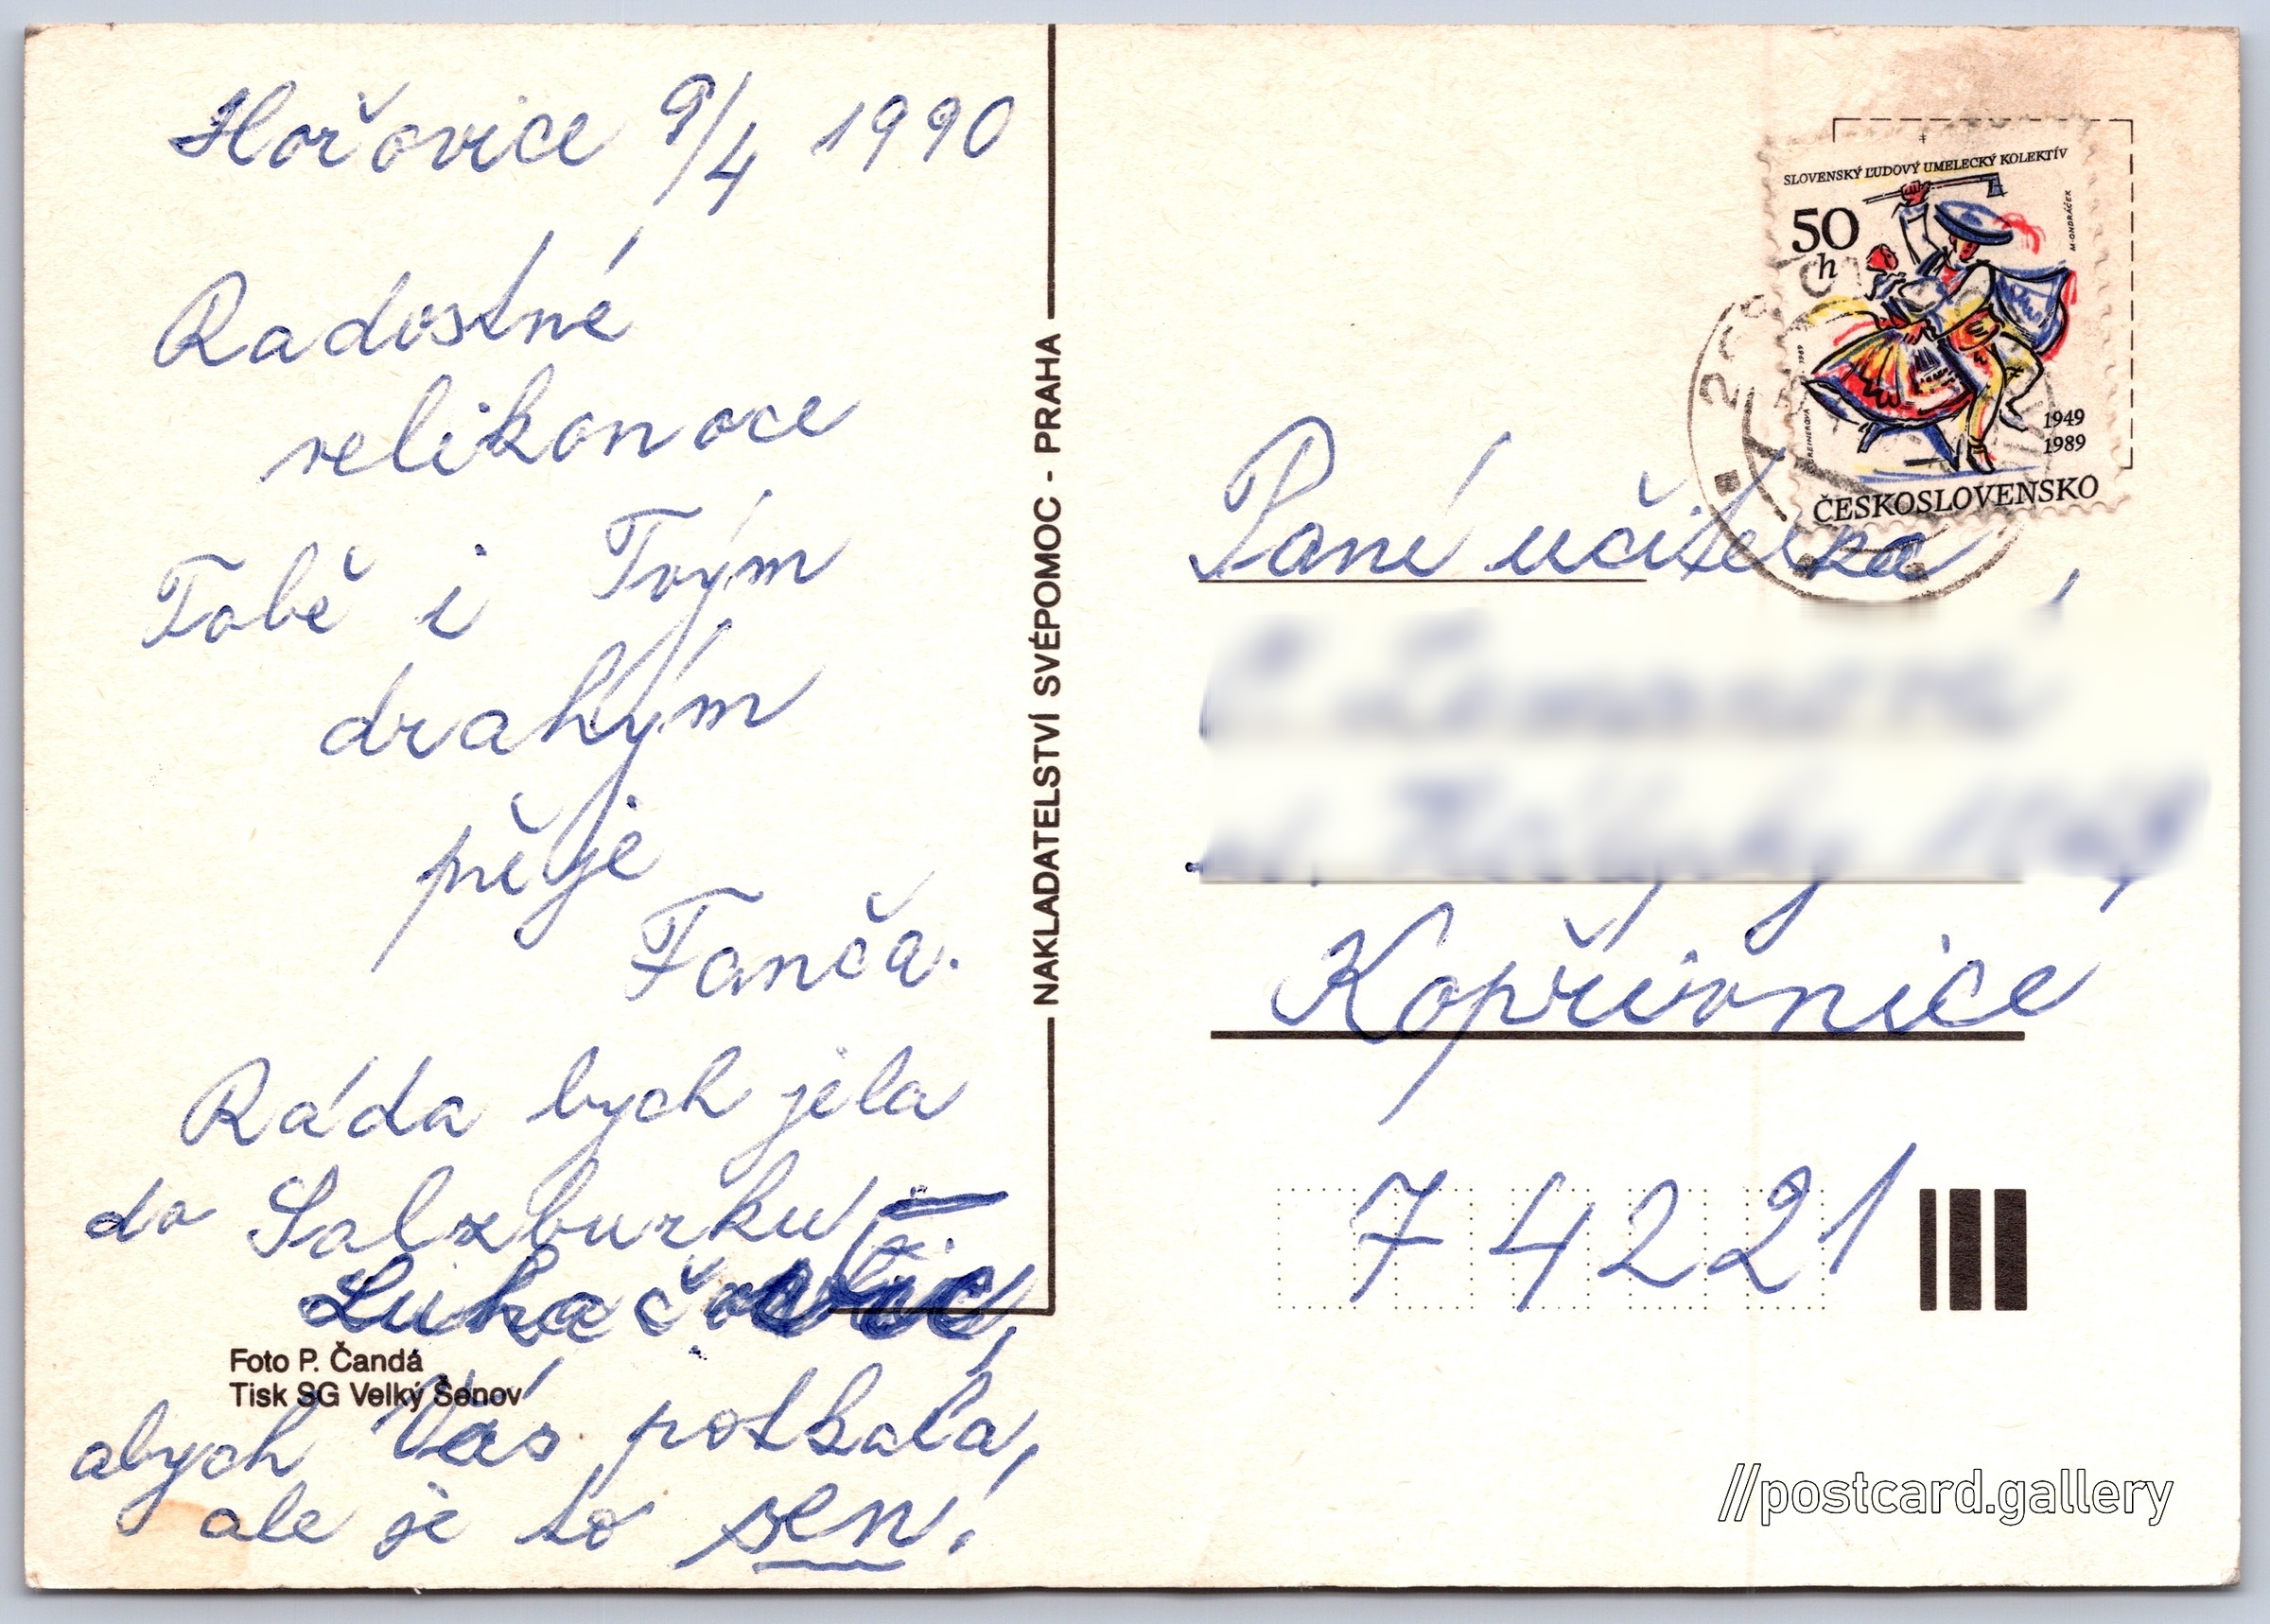 Hořovice 9/4 1990
Radostné
velikonoce
Tobě i Tvým
drahým
přeje
Fanča.
Ráda bych jela
do Salzburku
Luhačovic,
abych Vás potkala,
ale je to sen!
Foto P. Čandá
Tisk SG Velký Šenov
NAKLADATELSTVÍ SVÉPOMOC - PRAHA
SLOVENSKÝ ĽUDOVÝ UMELECKÝ KOLEKTÍV
50
h
M. ONDRÁČEK
1949
1989
ČESKOSLOVENSKO
Paní učitelka,
Kopřivnice
74221
//postcard.gallery